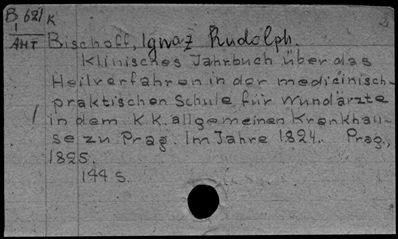 B 621 K
1
AHT
Bischoff, Ignaz Rudolph.
Klinisches Jahrbuch über das
Heilverfahren in der medicinisch-
praktischen Schule für Wundärzte
in dem K.K. allgemeinen Krankhau-
se zu Prag. Im Jahre 1824. Prag,
1825.
144 S.